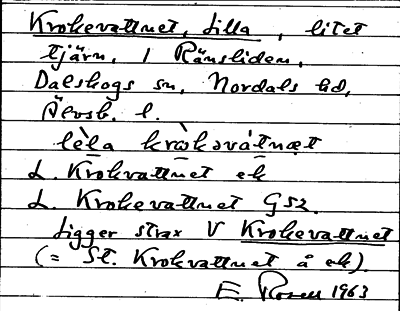 Krokevattnet, Lilla, litet
tjärn, i Ränsliden,
Dalskogs sn, Nordals hd,
Älvsb. l.
lèla kròksvátnæt
L. Krokvattnet ek
L. Krokevattnet GS2.
Ligger strax V Krokevattnet
(= St. Krokvattnet å ek).
E. Rosell 1963